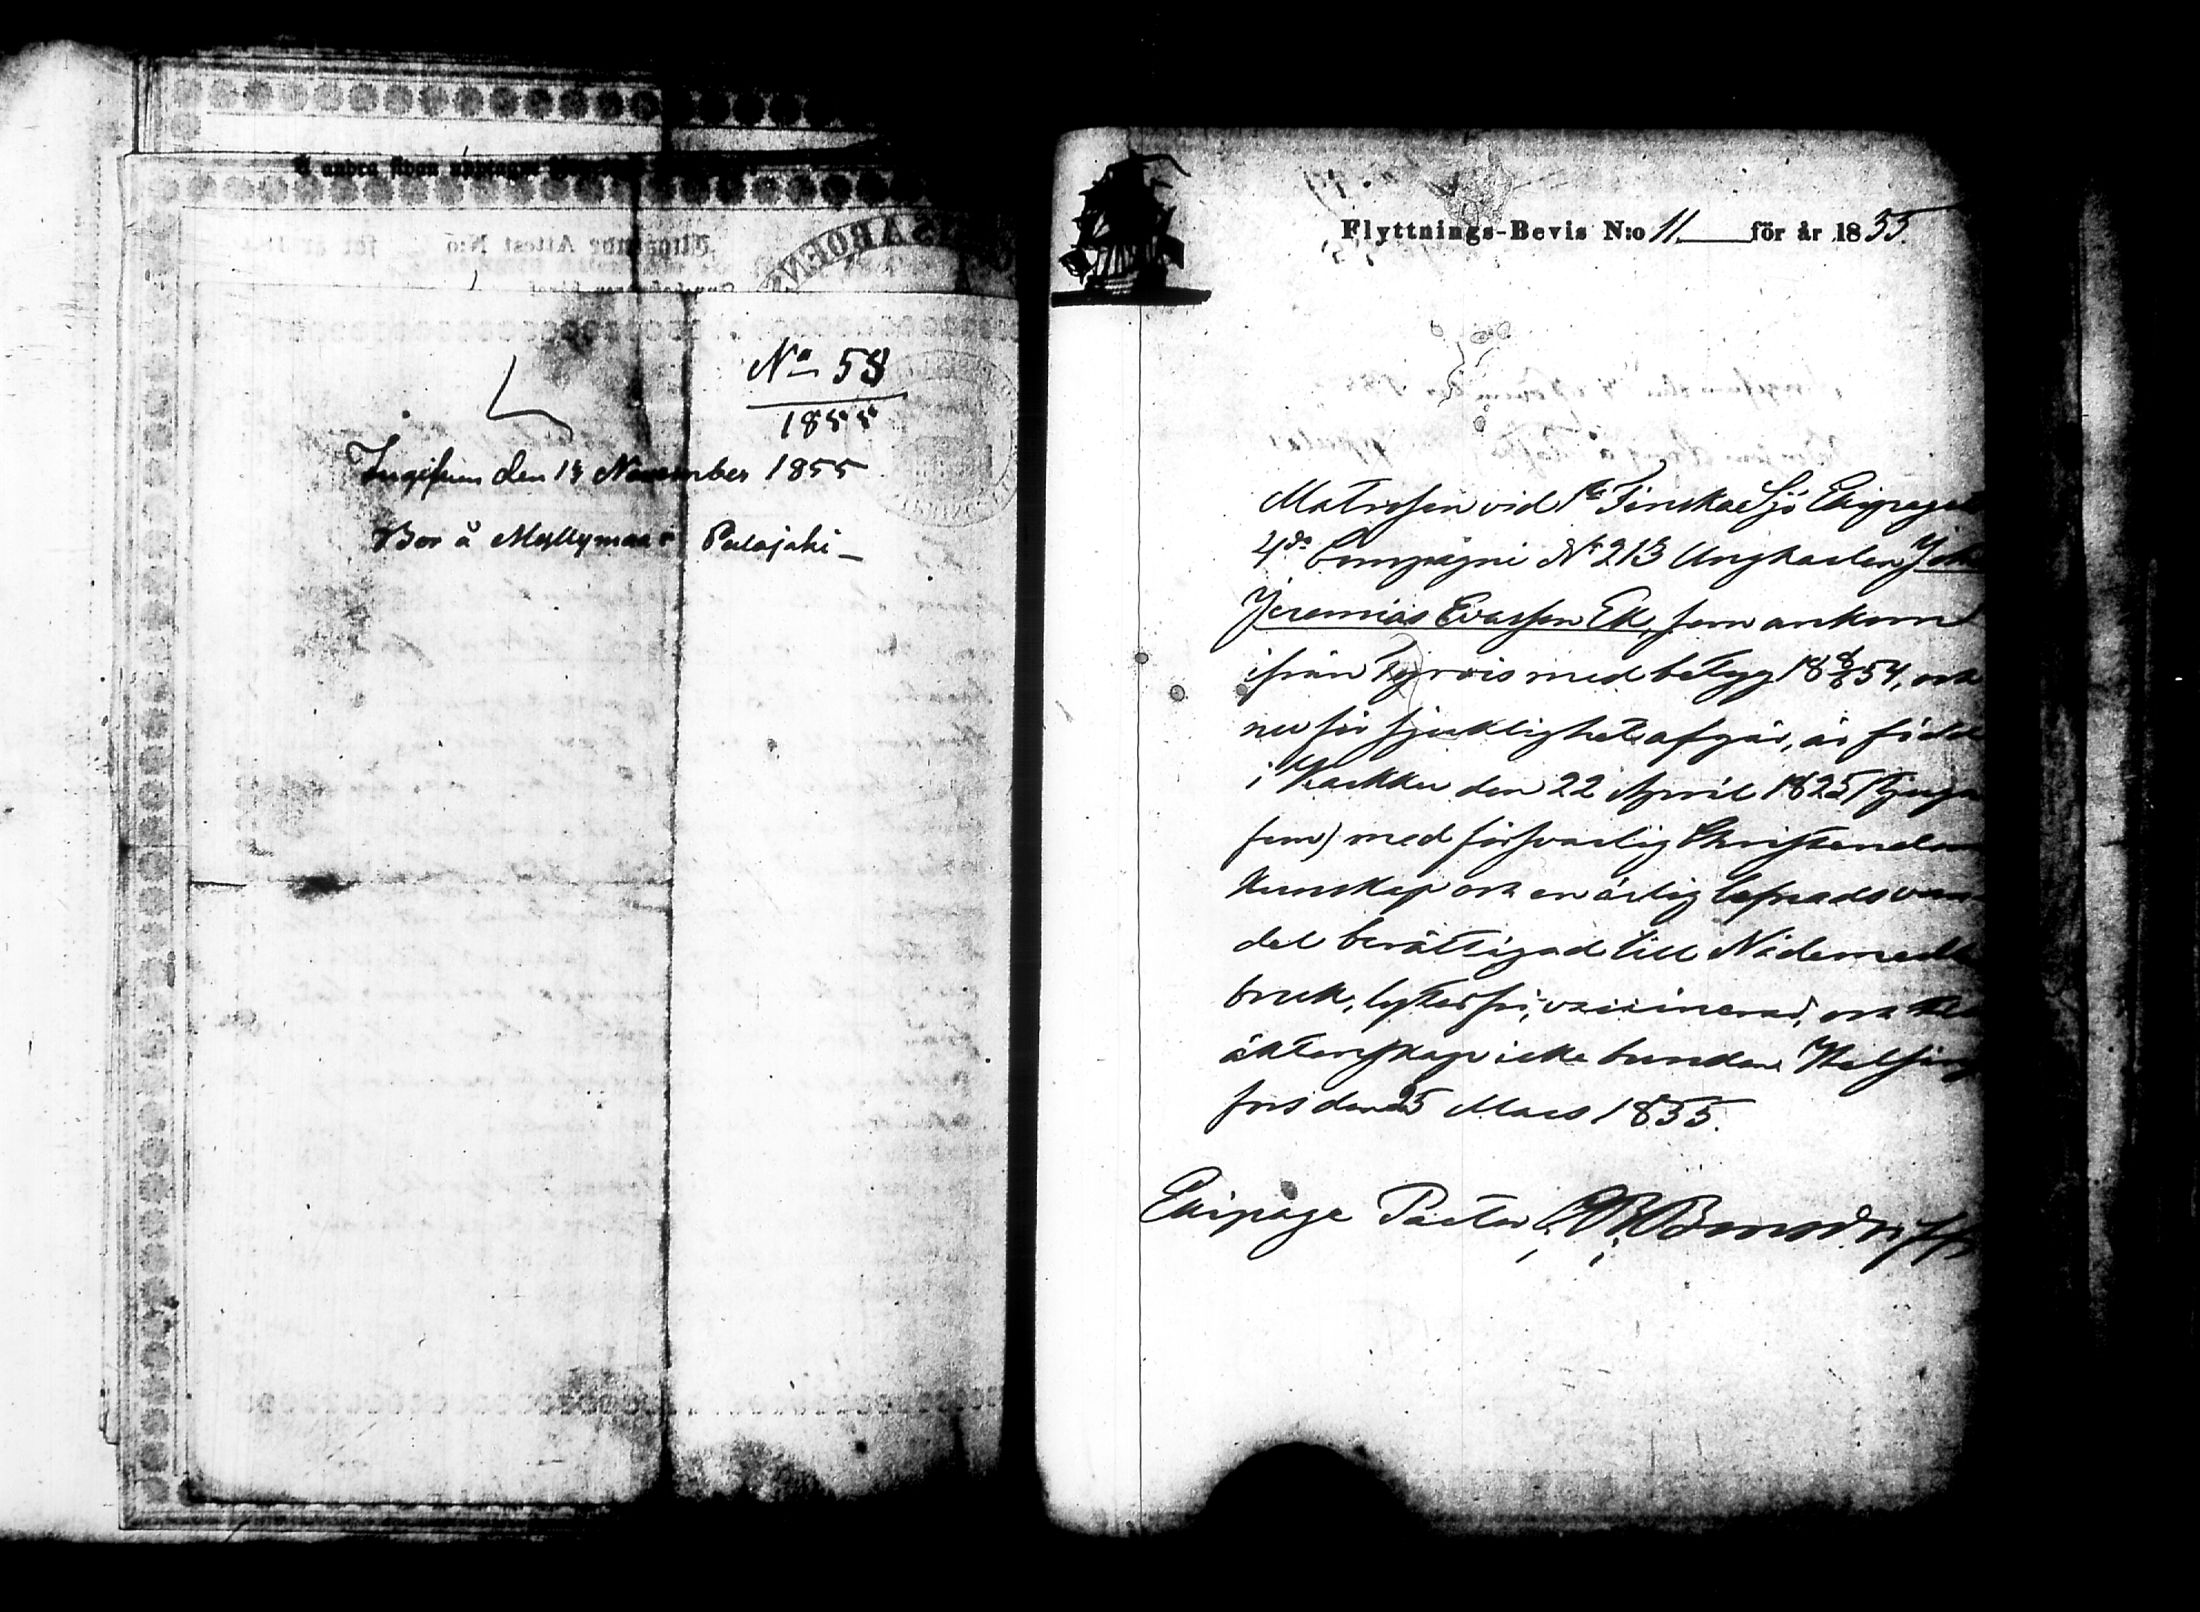 Å andra sidan
Attest N:o för år 18
N:o 58
1855
Ingifven den 14 November 1855
Bor å Myllymaa i Palojoki
Flyttnings-Bevis N:o 11. för år 1855.
Matrosen vid 1sta Finska Sjö Equipaget
4de Compagnie No 213 Ungkarlen Joh
Jeremias Evasson Ek, som ankom
ifrån Tyrvis med betyg 18 54, och
nu för sjuklighet afgår, är född
i Karkku den 22 April 1825 (tjugu
fem) med försvarlig Christendoms
kunskap och en ärlig lefnadsvan-
del berättigad till Nådemedlens
bruk, lytesfri, vaccinerad, och till
äktenskap icke bunden. Helsing
fors den 25 Mars 1855.
Ekipage Pastor